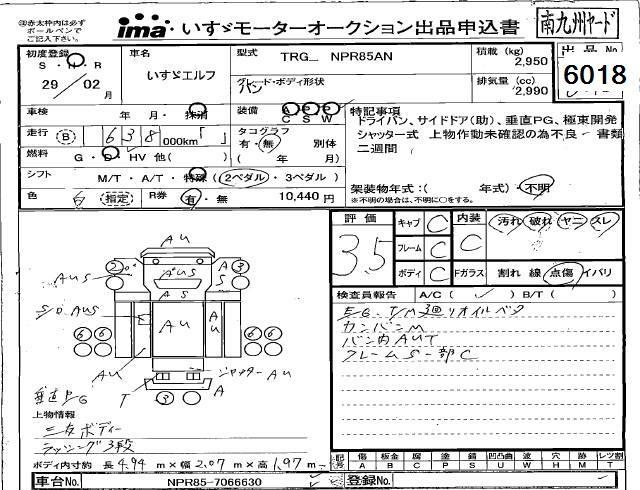 ①赤太枠内は必ず
ボールペンで
ご記入下さい。
ima いすゞモーターオークション出品申込書
南九州ヤード
初度登録 車名 型式 TRG_ NPR85AN 積載 (kg) 出品No.
S・H・R いすゞエルフ 2,950 6018
29/02月 グレード・ボディ形状 バン 排気量 (cc) 2,990
車検 年 月・抹消 装備 A P A C S W 特記事項
ドライバン、サイドドア(助)、垂直PG、極東開発
走行 B 638 000km「 」 タコグラフ シャッター式 上物作動未確認の為不良 書類
有・無 別体 二週間
燃料 G・D・HV 他( ) ( 年 月)
シフト M/T・A/T・特殊 (2ペダル・3ペダル) 架装物年式:( 年式)・不明
※不明の場合は、不明に○をする。
色 白 指定 R券 有・無 10,440円
評価 キャブ C 内装 汚れ・破れ・ヤニ・スレ
3.5 フレーム C C
ボディ C Fガラス 割れ 線 点傷 イバリ
検査員報告 A/C( ✓ ) B/T( )
EG、T/M廻リオイルベタ
カンバンM
バン内AUT
フレームS一部C
AU
2 AUS A 3
AUS A S S
S/D AUS
AU AU
6 6 6 6
AU シャッターAU
T 3 A
垂直PG
上物情報
三友ボディー
ラッシング3段
ボディ内寸約 長 4.94 m×幅 2.07 m×高 1.97 m
記号 傷 板金 腐 塗 錆 凹凸曲 波 穴 跡 レツ割
A B C P S U W H M T
車台No. NPR85-7066630 登録No.